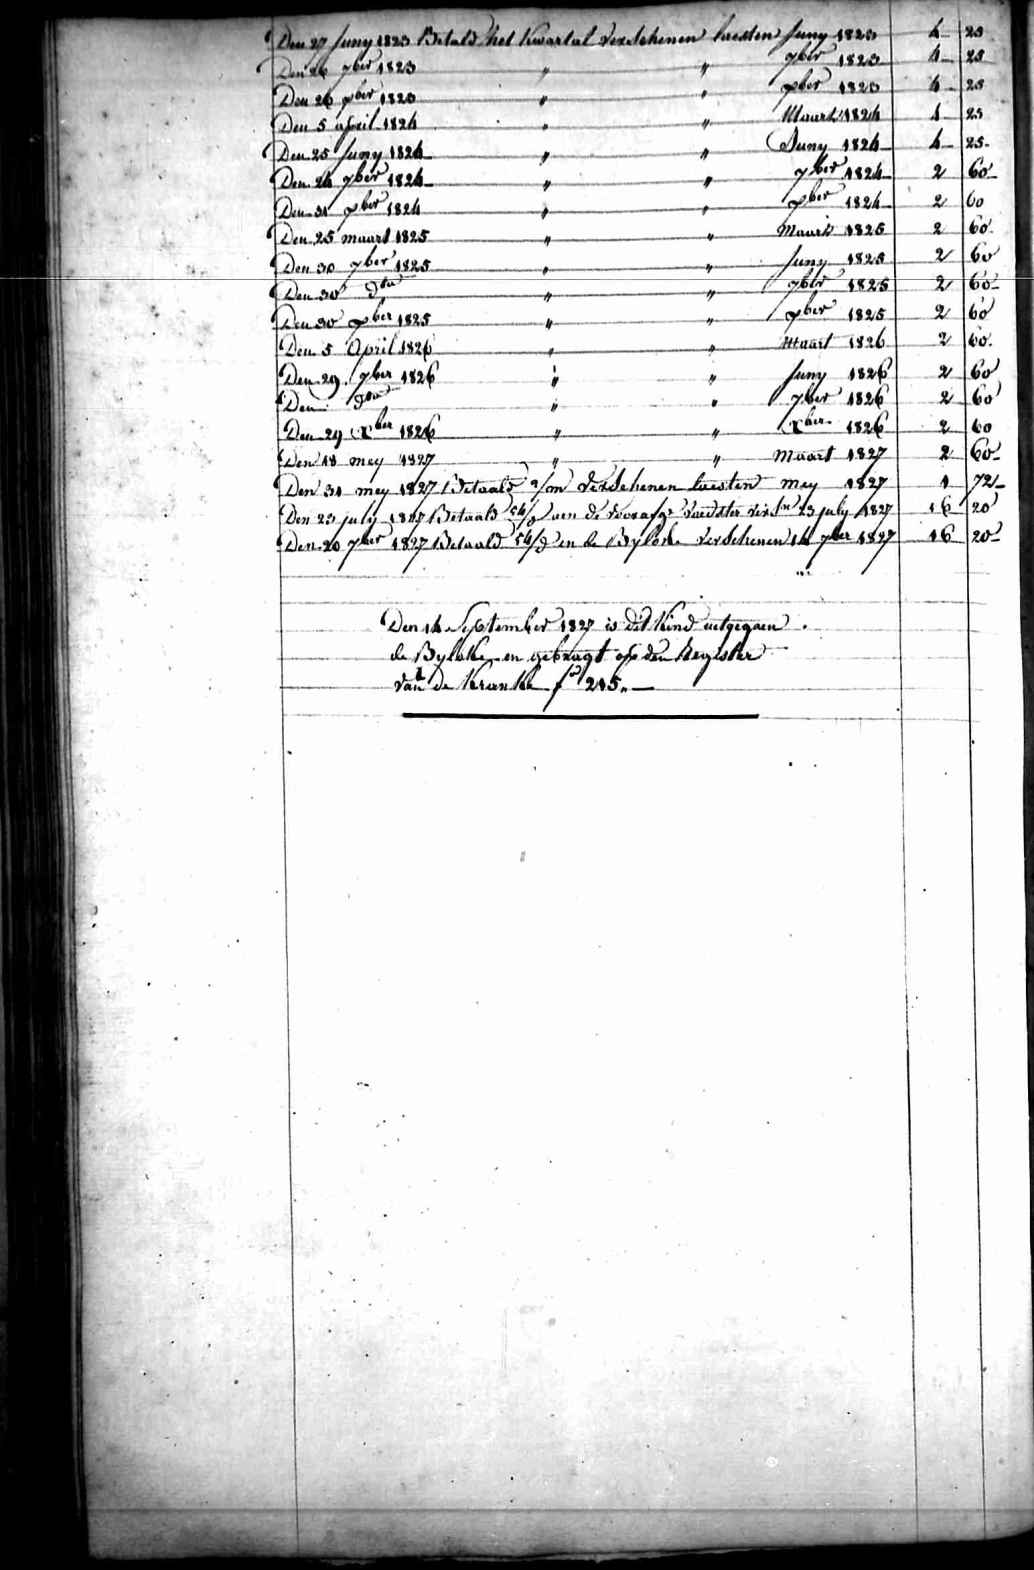 Den 27 Juny 1823 Betald het Kwartal Verschenen laesten Juny 1823 4 25
Den 26 7ber 1823 " " 7ber 1823 4 25
Den 26 xber 1823 " " xber 1823 4 25
Den 5 april 1824 " " Maart 1824 4 25
Den 25 Juny 1824 " " Juny 1824 4 25
Den 24 7ber 1824 " " 7ber 1824 2 60
Den 31 xber 1824 " " xber 1824 2 60
Den 25 maart 1825 " " Maart 1825 2 60
Den 30 7ber 1825 " " Juny 1825 2 60
Den 30 dto " " 7ber 1825 2 60
Den 30 xber 1825 " " xber 1825 2 60
Den 5 April 1826 " " Maart 1826 2 60
Den 29 7ber 1826 " " Juny 1826 2 60
Den dto " " 7ber 1826 2 60
Den 29 Xber 1826 " " Xber 1826 2 60
Den 18 mey 1827 " " Maart 1827 2 60
Den 31 mey 1827 Betaald 2/m Verschenen laesten mey 1827 1 72
Den 23 july 1827 Betaald 54/d aen de voorafge 23 july 1827 16 20
Den 20 7ber 1827 Betaald 54/d en de Byloke Verschenen 14 7ber 1827 16 20
Den 14 September 1827 is dit Kind uetgegaen
de Byloke en gebragt op den Register
van de Kranke fo 215